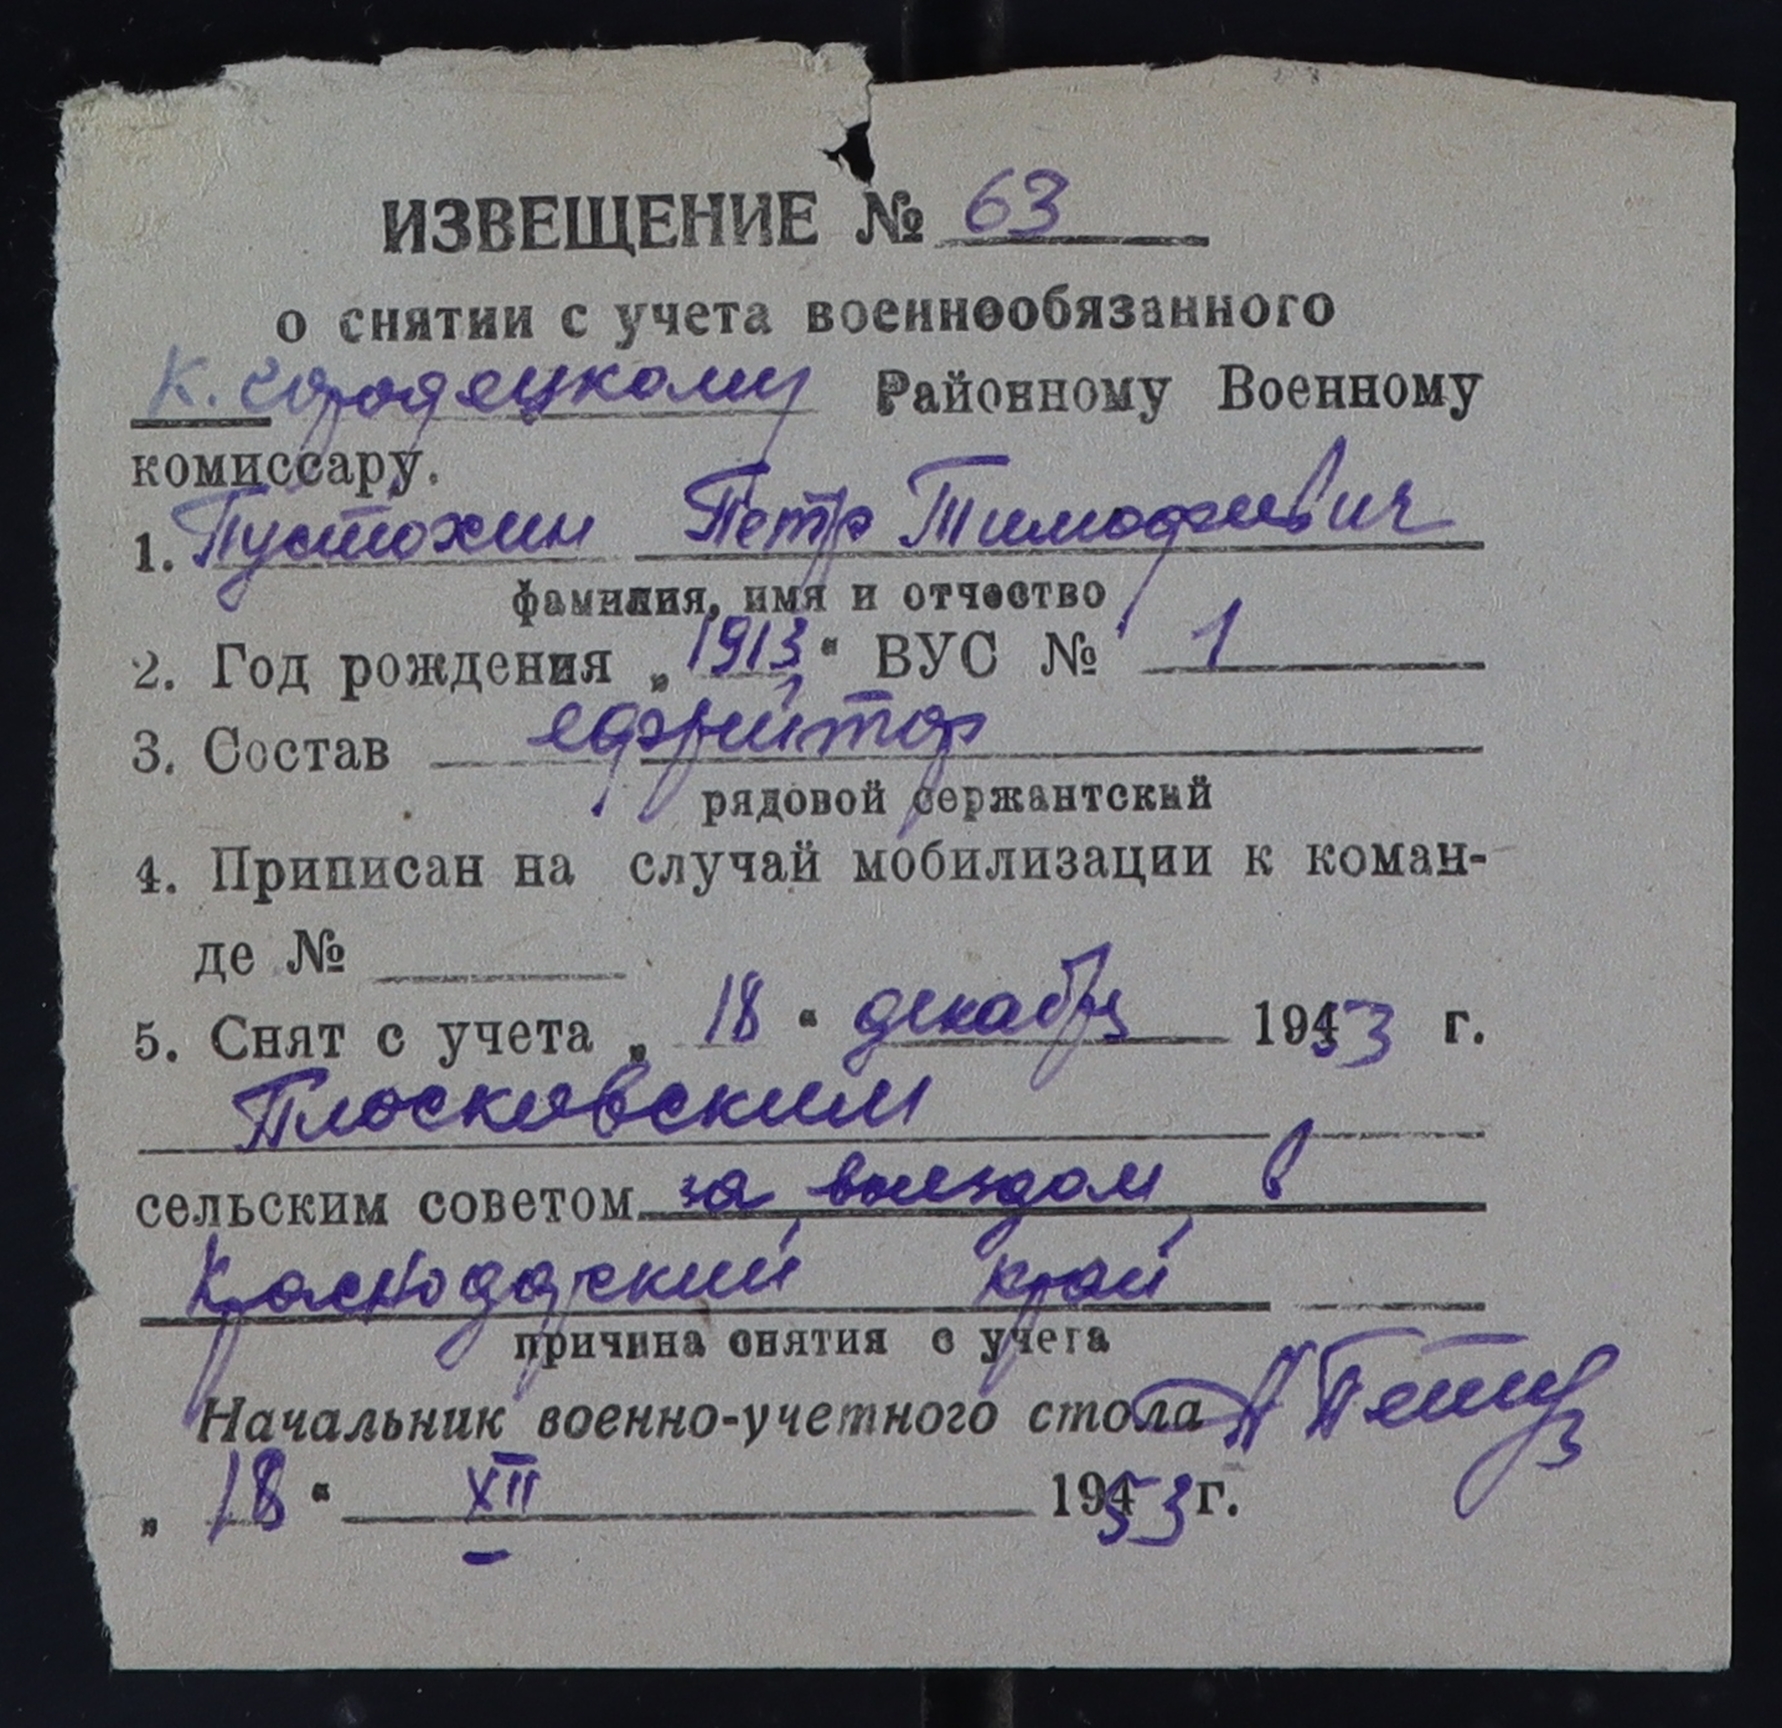 ИЗВЕЩЕНИЕ № 63
о снятии с учета военнообязанного
К. городецкому Районному Военному
комиссару.
1. Пустохин Петр Тимофеевич
фамилия, имя и отчество
2. Год рождения „1913“ ВУС № 1
3. Состав ефрейтор
рядовой сержантский
4. Приписан на случай мобилизации к коман-
де №
5. Снят с учета „18“ декабря 1953 г.
Плосковским
сельским советом за выездом в
Краснодарский край
причина снятия с учета
Начальник военно-учетного стола
„18“ XII 1953 г.